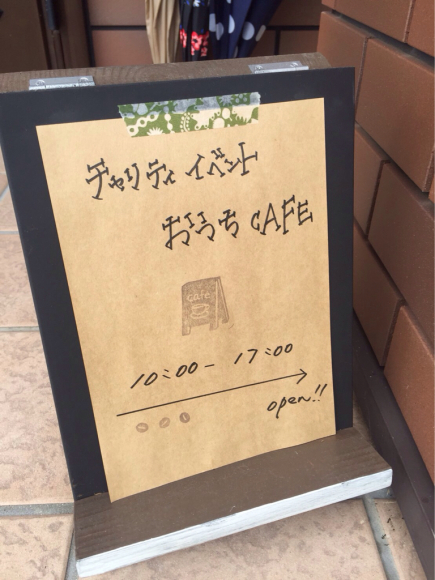 チャリティイベント
おうちCAFE
cafe
10:00- 17:00
open!!